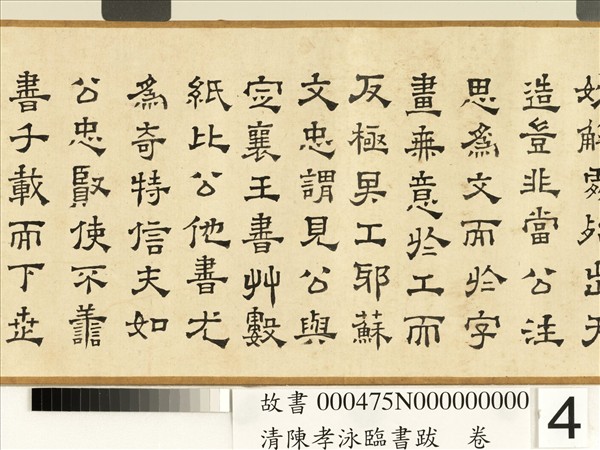 妙解處殆出天
造豈非當公注
思爲文而於字
畫無意於工而
反極其工邪蘇
文忠謂見公與
定襄王書艸數
紙比公他書尤
爲奇特信夫如
公忠賢使不善
書千載而下世
故書 000475N000000000
清陳孝泳臨書跋 卷
4